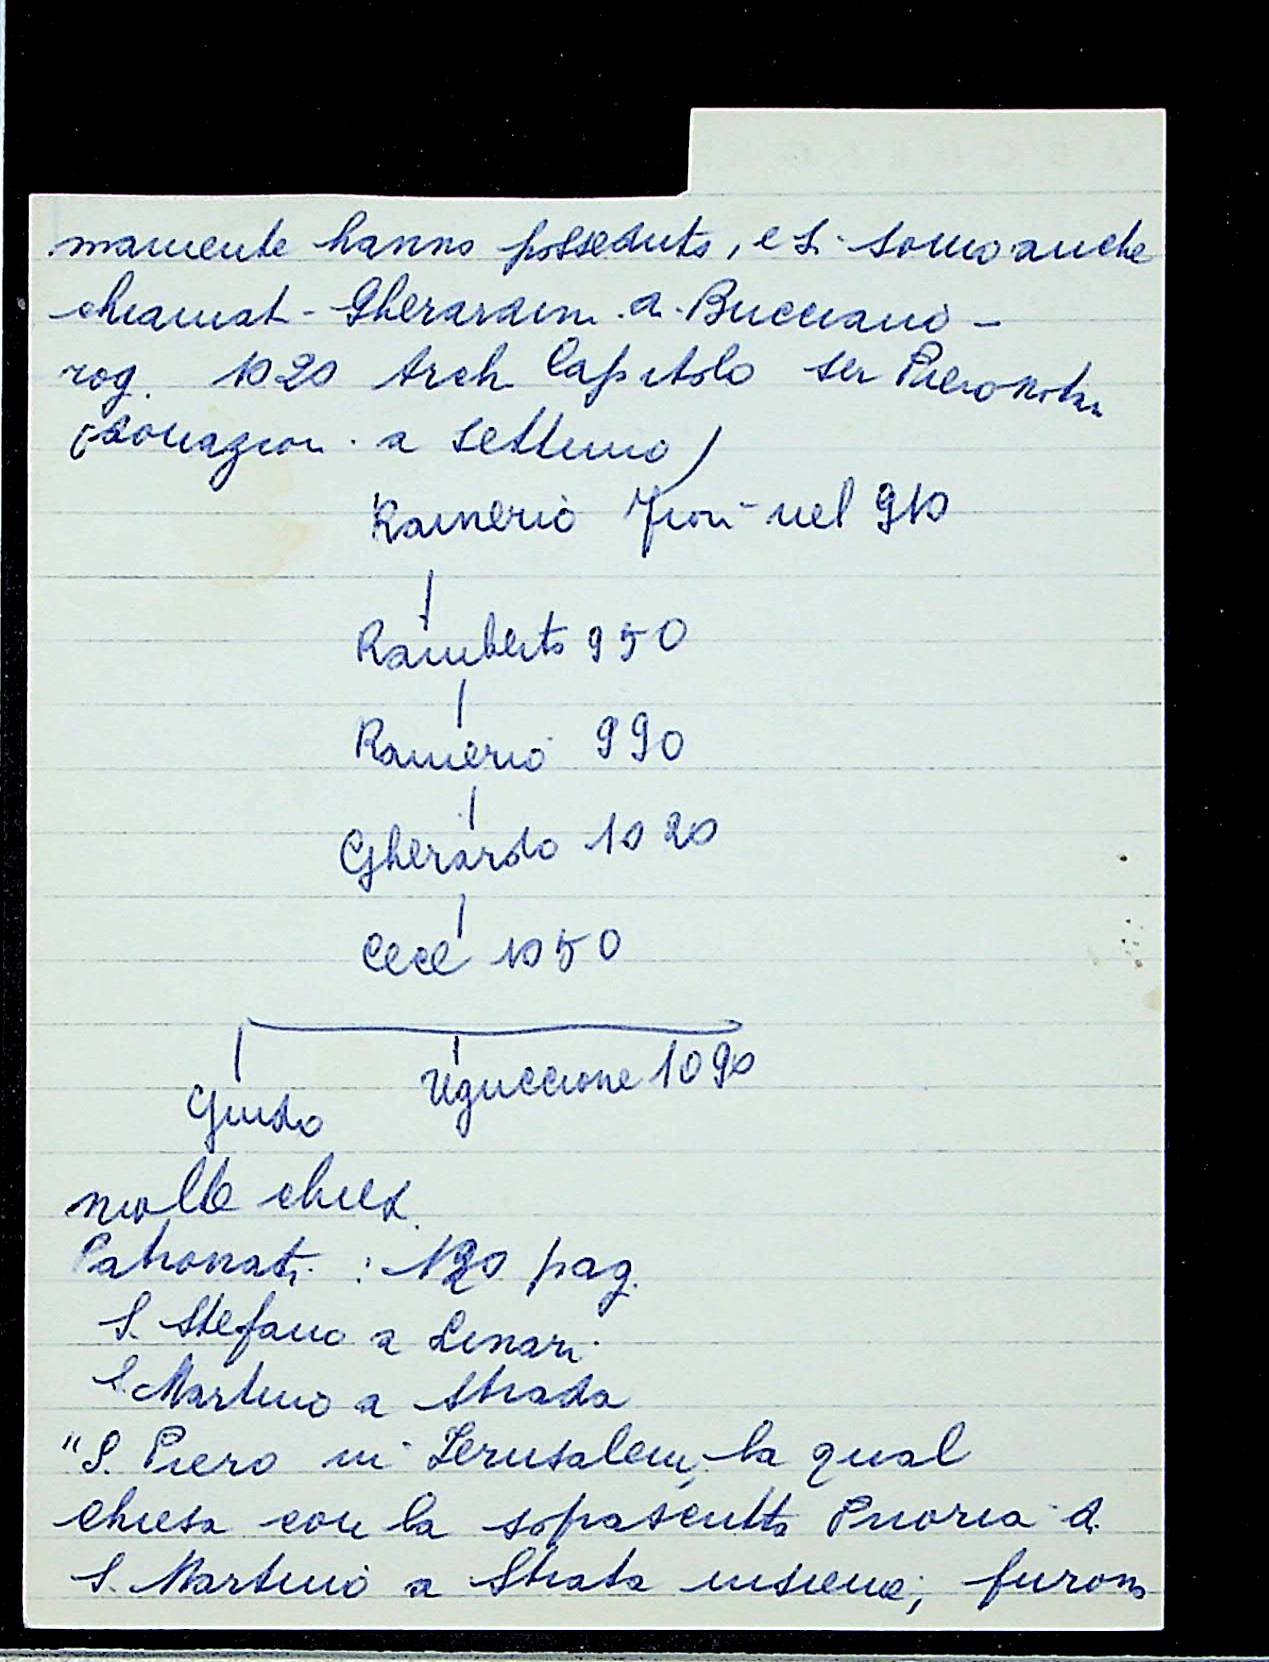 mamente hanno posseduto, e si sono anche
chiamati Gherardini a Bucciano -
rog. 1020 Arch Capitolo ser Piero notar
(donazion a Settimo)
Rainerio fiorì nel 910
Ramberto 950
Rainerio 990
Gherardo 1020
Cece 1050
Guido Uguccione 1090
molte chies
Patronati : 120 pag.
S. Stefano a Linari
S. Martino a Strada
"S. Piero in Jerusalem, la qual
chiesa con la sopascritta Prioria di
S. Martino a Strata insieme, furono